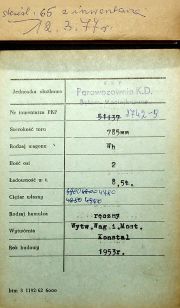 skreśl. 66 z inwentarza
12.3.77r.
Jednostka służbowa Parowozownia K.D.
Nr inwentarza PKP 51437 8742-D
Szerokość toru 785mm
Rodzaj wagonu Wh
Ilość osi 2
Ładowność w t. 8,5t.
Ciężar własny
4250 4360
Rodzaj hamulca ręczny
Wytwórnia Wytw.Wag.i.Most. Konstal
Rok budowy 1953r.